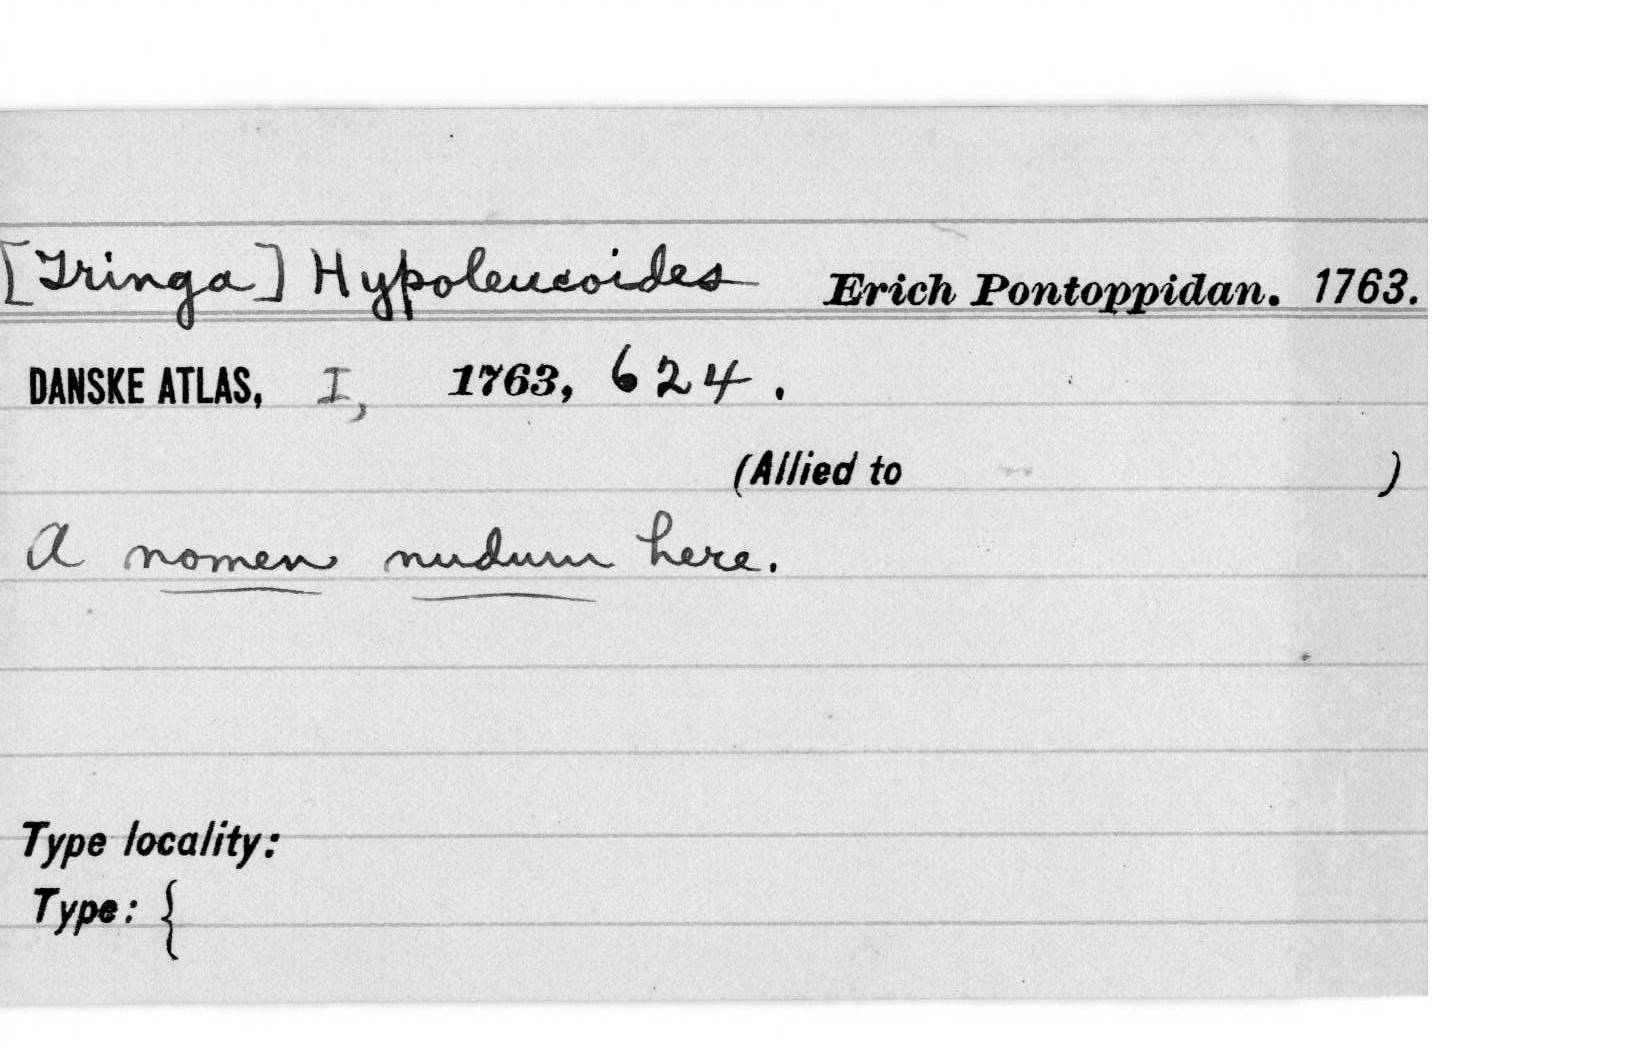 [Tringa] Hypoleucoides Erich Pontoppidan. 1763.
DANSKE ATLAS, I, 1763, 624.
(Allied to )
A nomen nudum here.
Type locality:
Type: {